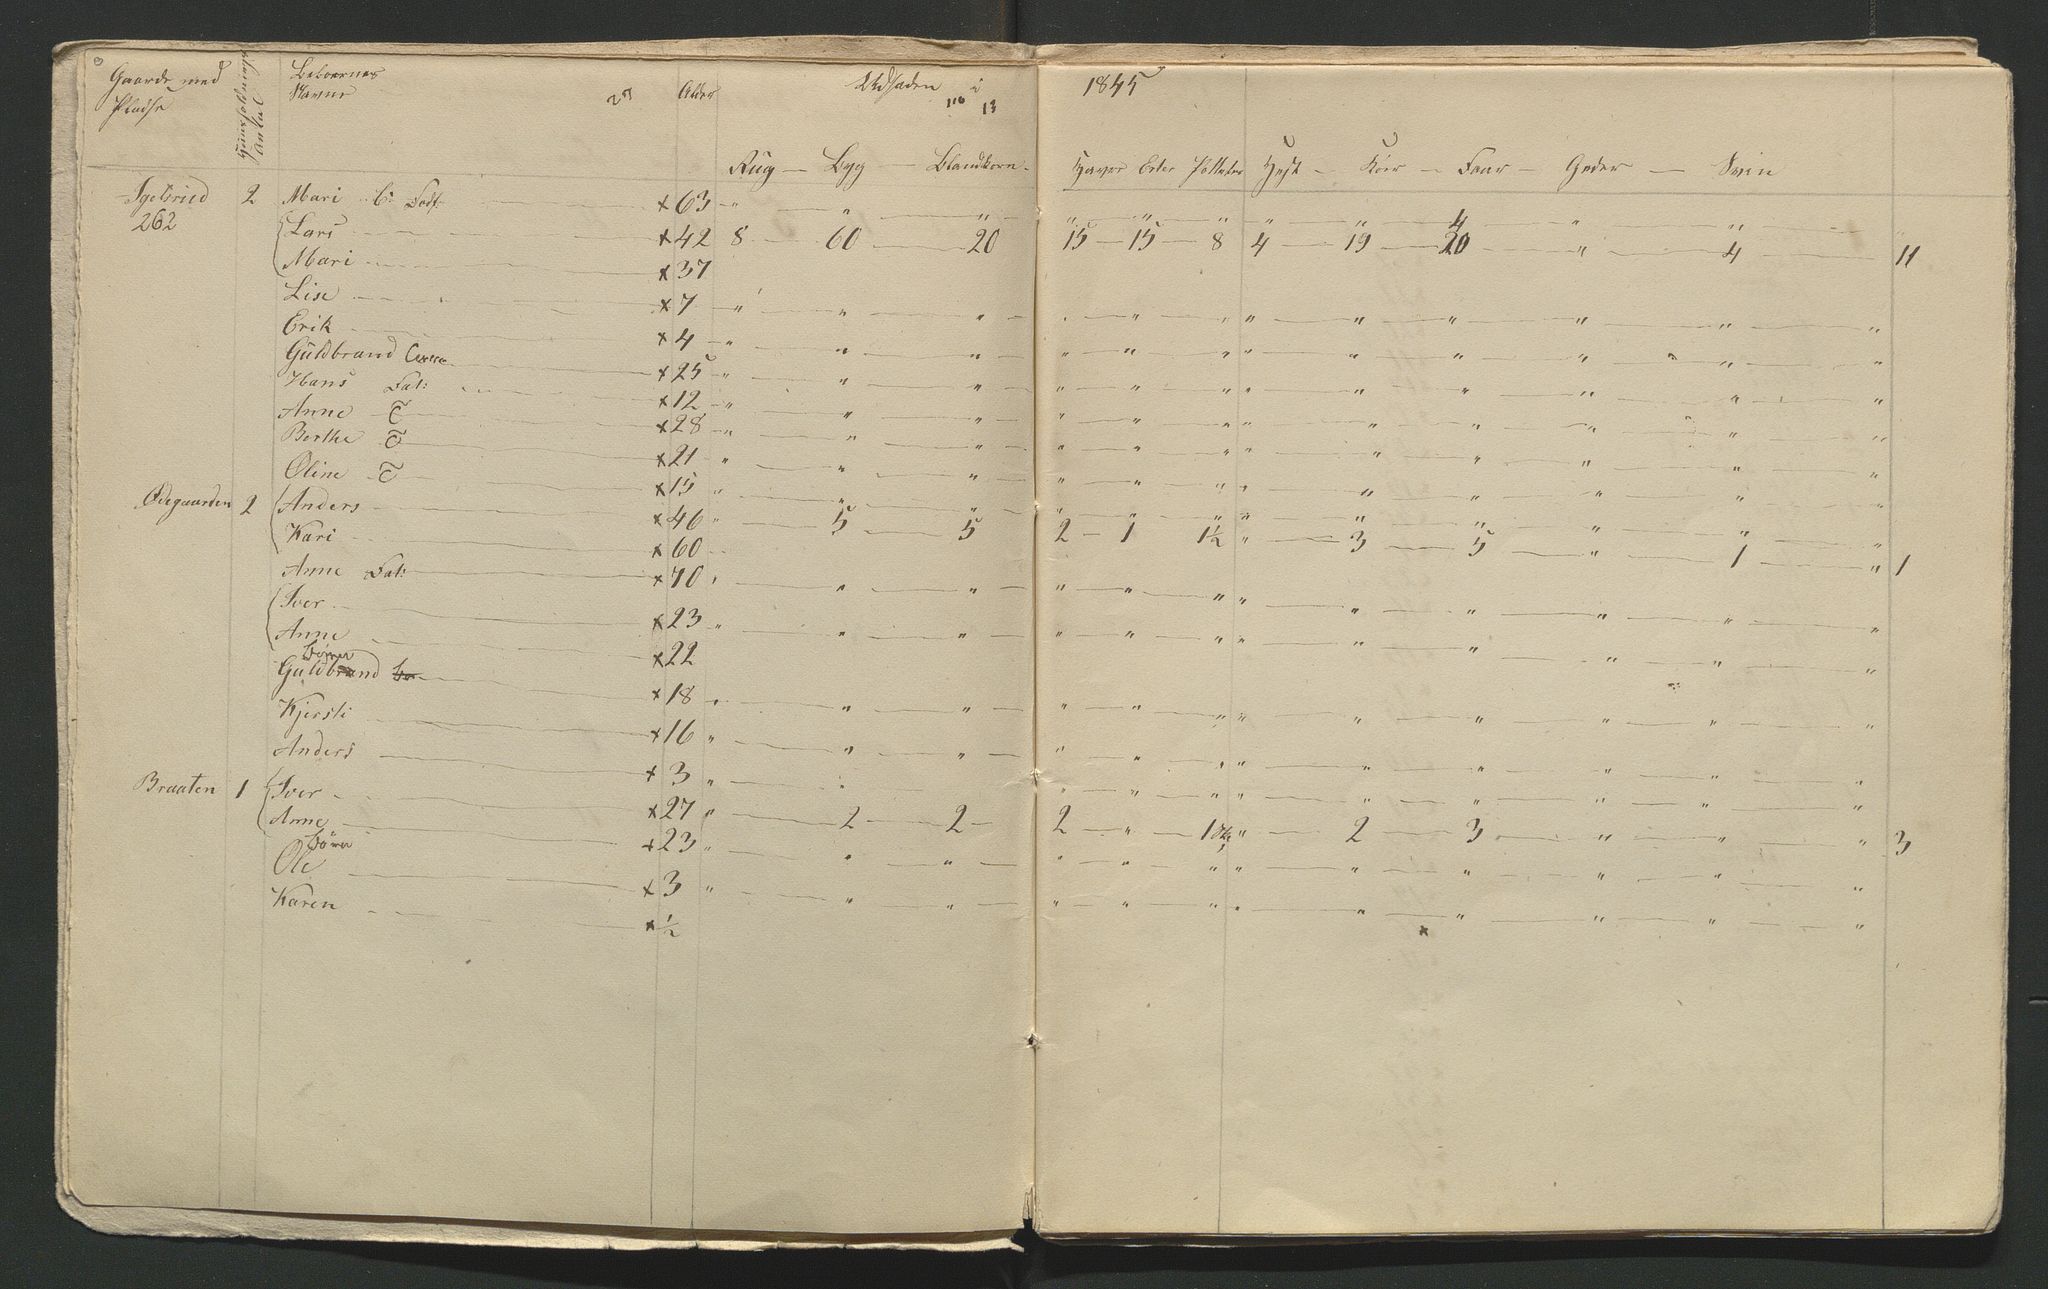 Gaarde med Pladse Huusholdningers Antal Beboernes Navne Alder Udsæden i 1845
Rug — Byg — Blandkorn — Havre Erter Potteter Hest — Kiør — Faar — Geder — Sviin
2 Mari E: Fodf: × 63 " " " " " " " " 4 " "
262 Lars × 42 8 60 20 15 15 8 4 19 20 " 4 11
Mari × 37
Lise × 7 " " " " " " " " " " "
Erik × 4 " " " " " " " " " " " "
Guldbrand × 25 " " " " " " " " " " " "
Hans Fat: × 12 " " " " " " " " " " "
Anne T × 28 " " " " " " " " " " " "
Berthe T × 21 " " " " " " " " " " " "
Oline T × 15 " " " " " " " " " " " "
Ødegaarden 2 Anders × 46 " 5 5 2 1 1½ " 3 5 " 1 " 1
Kari × 60
Anne Fat: × 70 " " " " " " " " " " "
Iver × 23 " " " " " " " " " " "
Anne × 22
Børn
Guldbrand × 18 " " " " " " " " " " " "
Kjersti × 16 " " " " " " " " " " "
Anders × 3 " " " " " " " " " " "
Braaten 1 Iver × 27 " 2 2 2 " 1 " 2 3 " " " 3
Anne × 23 " " " " " " " " " " " "
Børn
Ole × 3 " " " " " " " " " " " "
Karen × ½